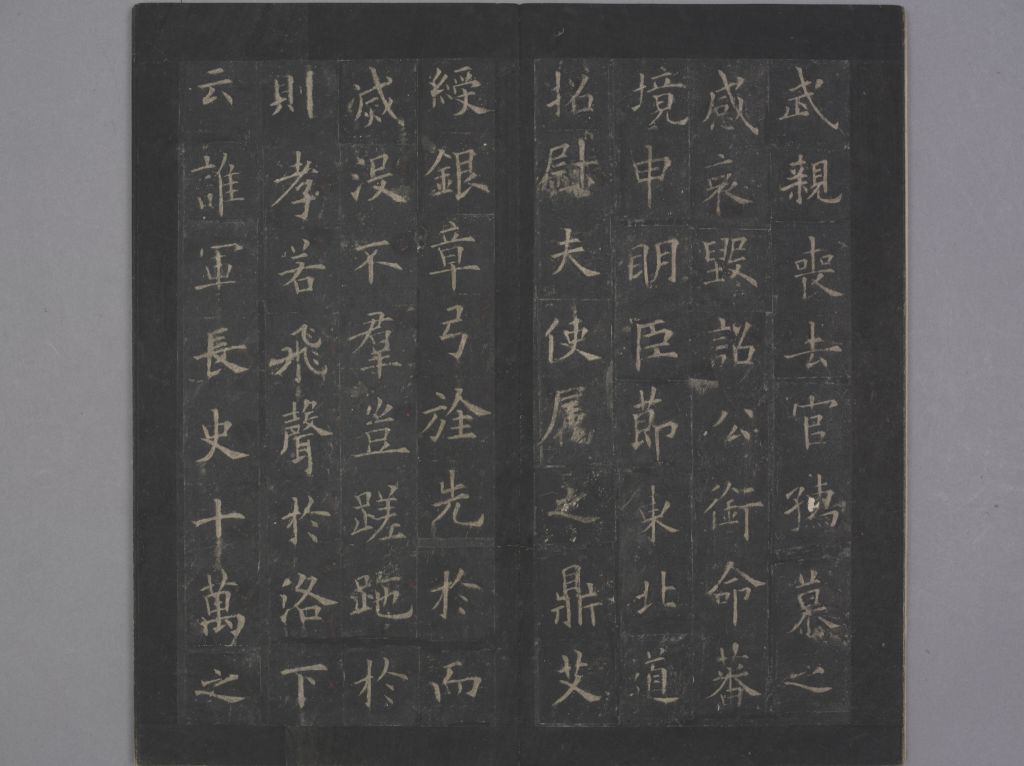 武親喪去官孺慕之
感哀毀詔公銜命蕃
境申明臣節東北道
招尉夫使屬之鼎艾
綬銀章弓旌先於而
滅沒不羣豈蹉跎於
則孝若飛聲於洛下
云誰軍長史十萬之